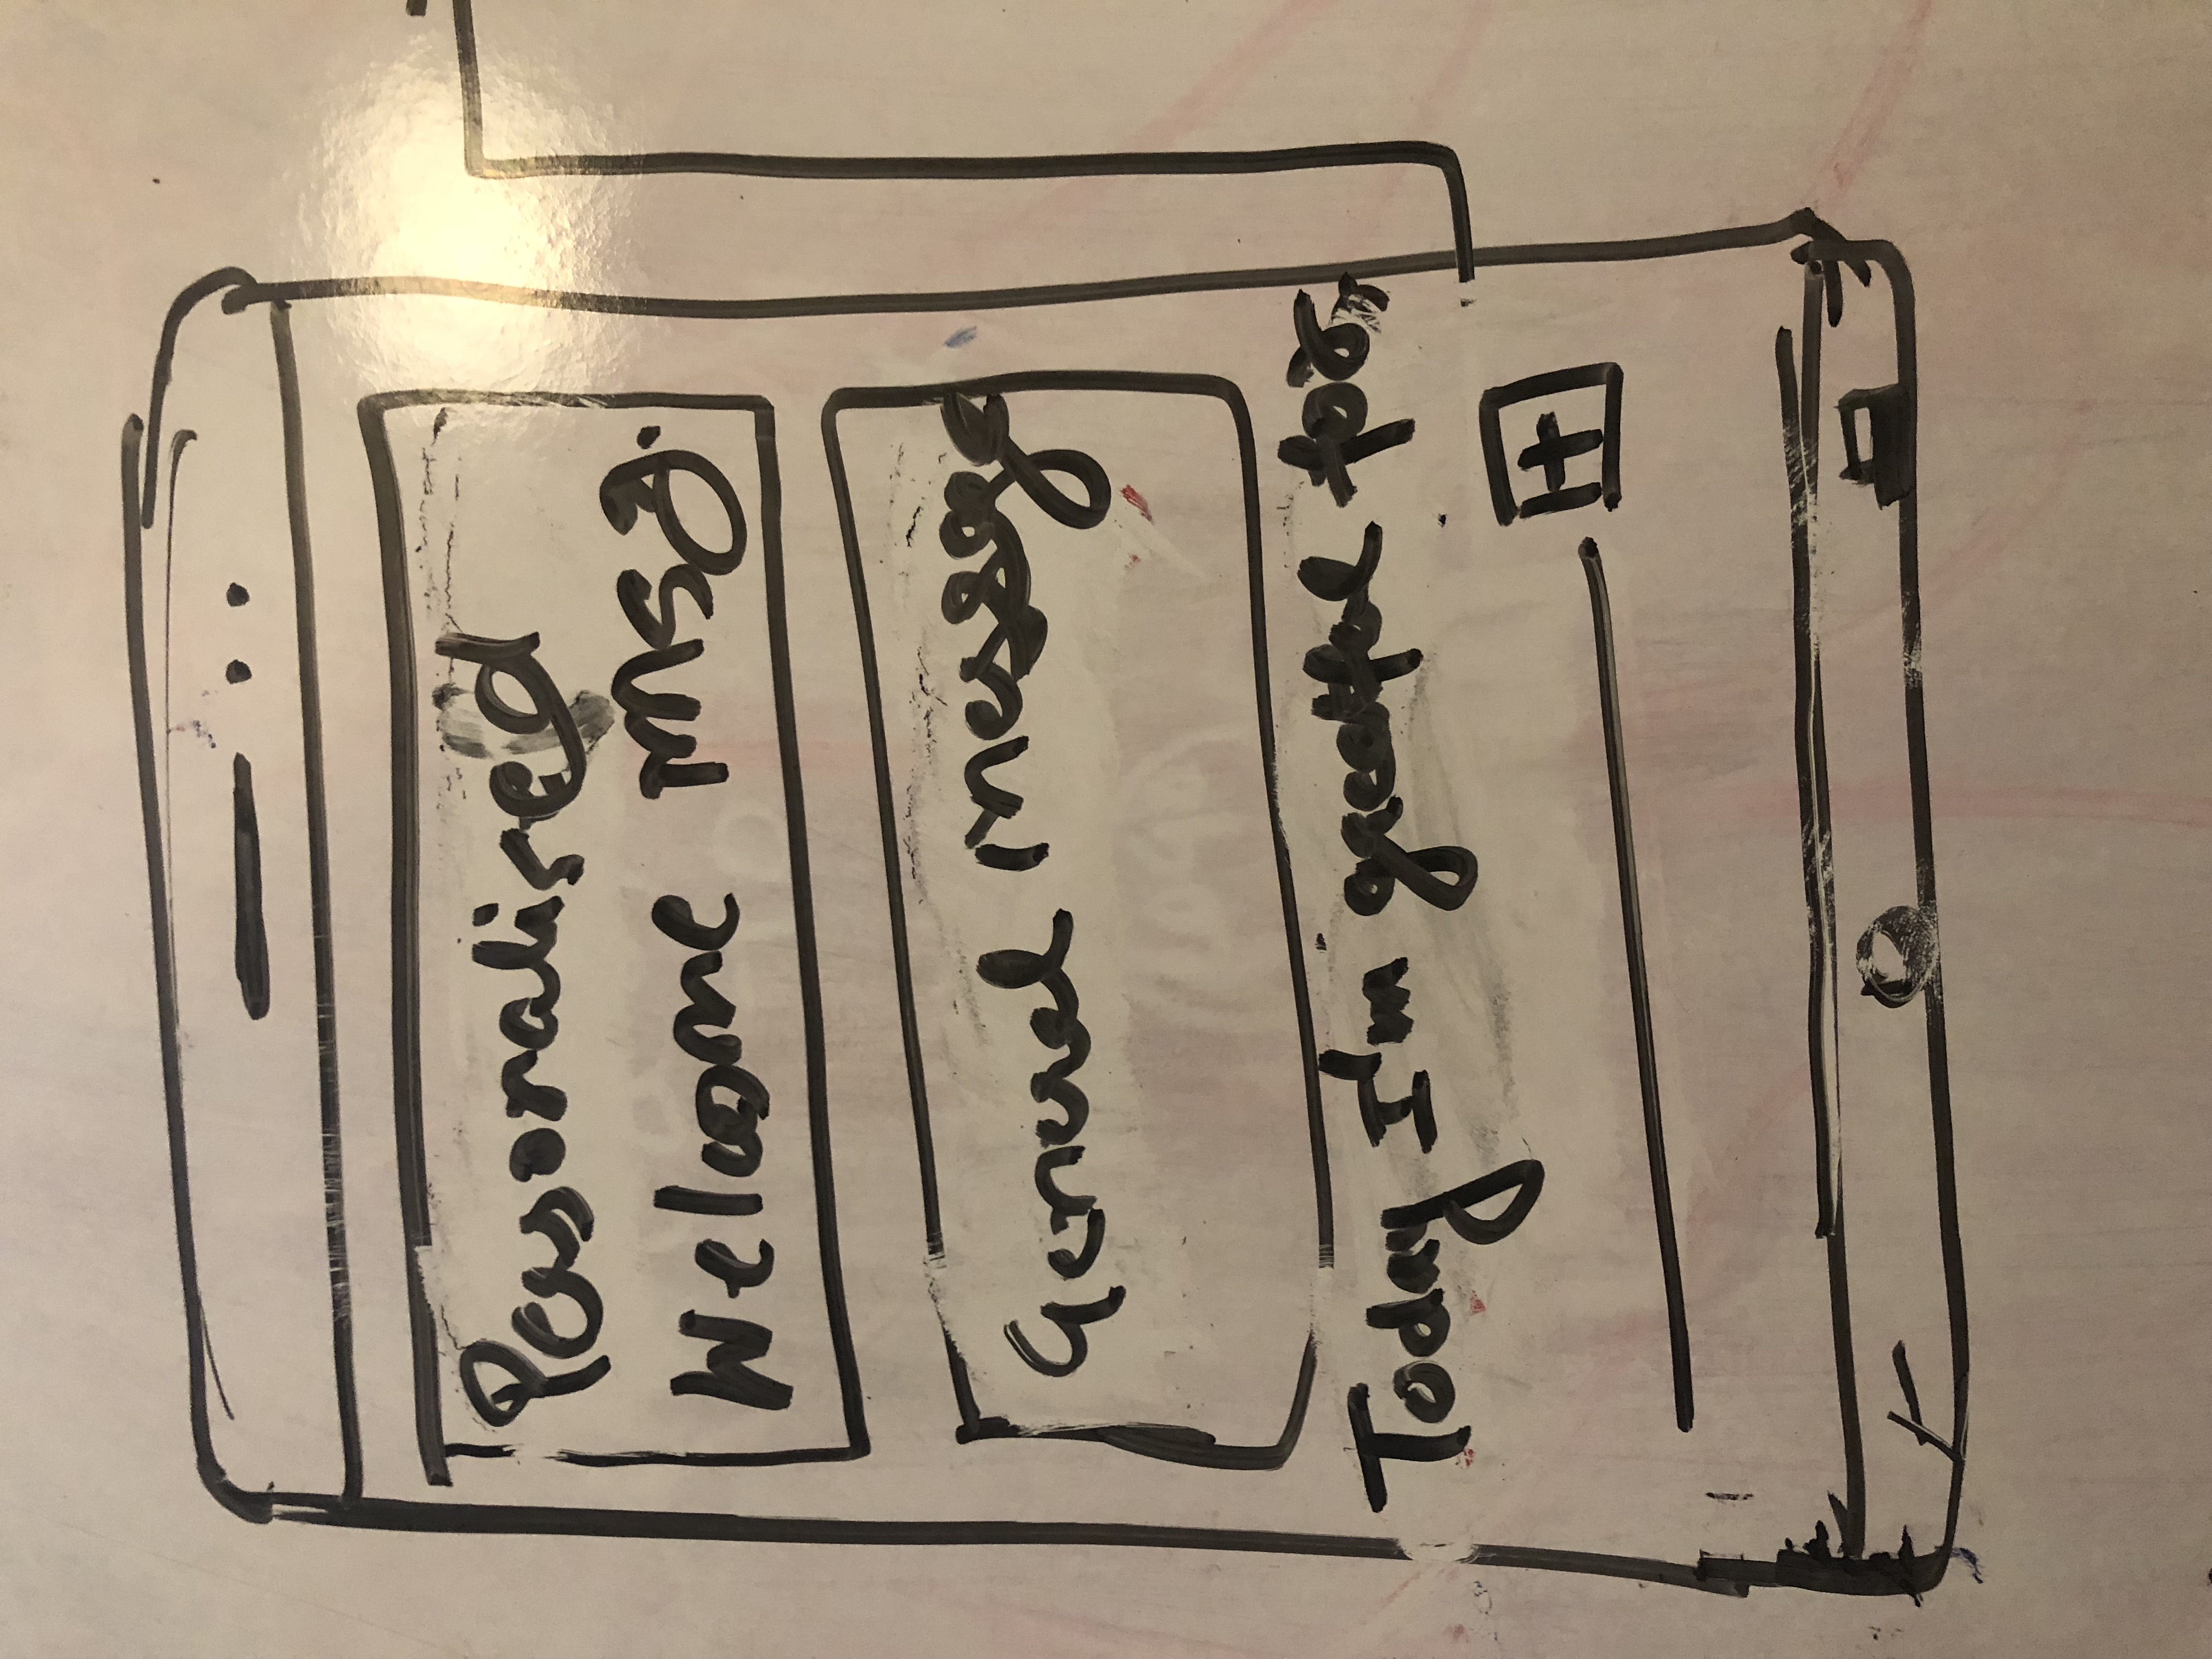 Personalised
Welcome msg.
General Message
Today I'm grateful for,
+